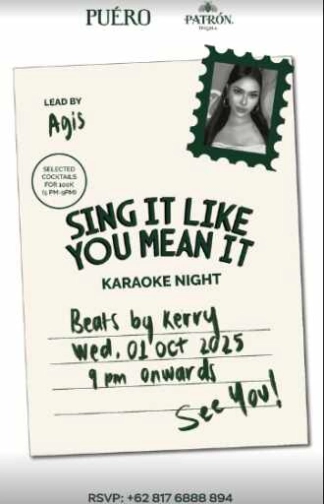 PUÉRO
PATRÓN.
TEQUILA
LEAD BY
Agis
SELECTED
COCKTAILS
FOR 100K
(5 PM-9PM)
SING IT LIKE
YOU MEAN IT
KARAOKE NIGHT
Beats by Kerry
Wed, 01 Oct 2025
9 pm onwards
See You!
RSVP: +62 817 6888 894